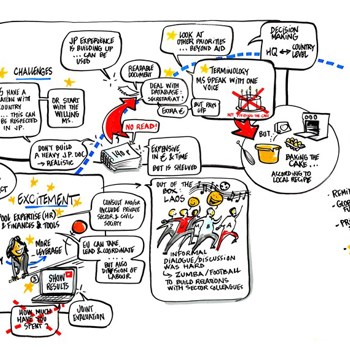 CHALLENGES
S HAVE A
TATION WITH
COUNTRY
... THIS CAN
BE RESPECTED
IN J.P.
OR START
WITH THE
WILLING
MS.
DON'T BUILD
A HEAVY J.P. DOC
→ REALISTIC
JP EXPERIENCE
IS BUILDING UP
... CAN BE
USED
READABLE
DOCUMENT
DEAL WITH
DATABASE:
SECRETARIAT?
NO READ!
EXPENSIVE
IN € & TIME
BUT IS SHELVED
LOOK AT
OTHER PRIORITIES ...
BEYOND AID
TERMINOLOGY
MS SPEAK WITH ONE
VOICE
BUT PAYS
OFF
DECISION
MAKING
HQ ↔ COUNTRY
LEVEL
BUT..
BAKING THE
CAKE...
ACCORDING TO
LOCAL RECIPE
EXCITEMENT
POOL EXPERTISE (HR)
& FINANCES & TOOLS
CONSULT AND/OR
INCLUDE PRIVATE
SECTOR & CIVIL
SOCIETY
MORE
LEVERAGE
EU CAN TAKE
LEAD & COORDINATE ...
BUT ALSO
DIVISION OF
LABOUR
SHOW
RESULTS
HOW MUCH
HAVE YOU
SPENT?
JOINT
EVALUATION
OUT OF THE
BOX:
LAOS
INFORMAL
DIALOGUE/DISCUSSION
WAS HARD
↳ ZUMBA/FOOTBALL
TO BUILD RELATIONS
WITH SECTOR COLLEAGUES